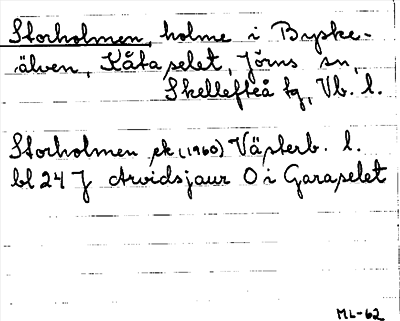 Storholmen, holme i Byske-
älven, Kåtaselet, Jörns sn,
Skellefteå tg, Vb. l.
Storholmen ek (1960) Västerb. l.
bl 24 J Arvidsjaur O i Garaselet
ML-62